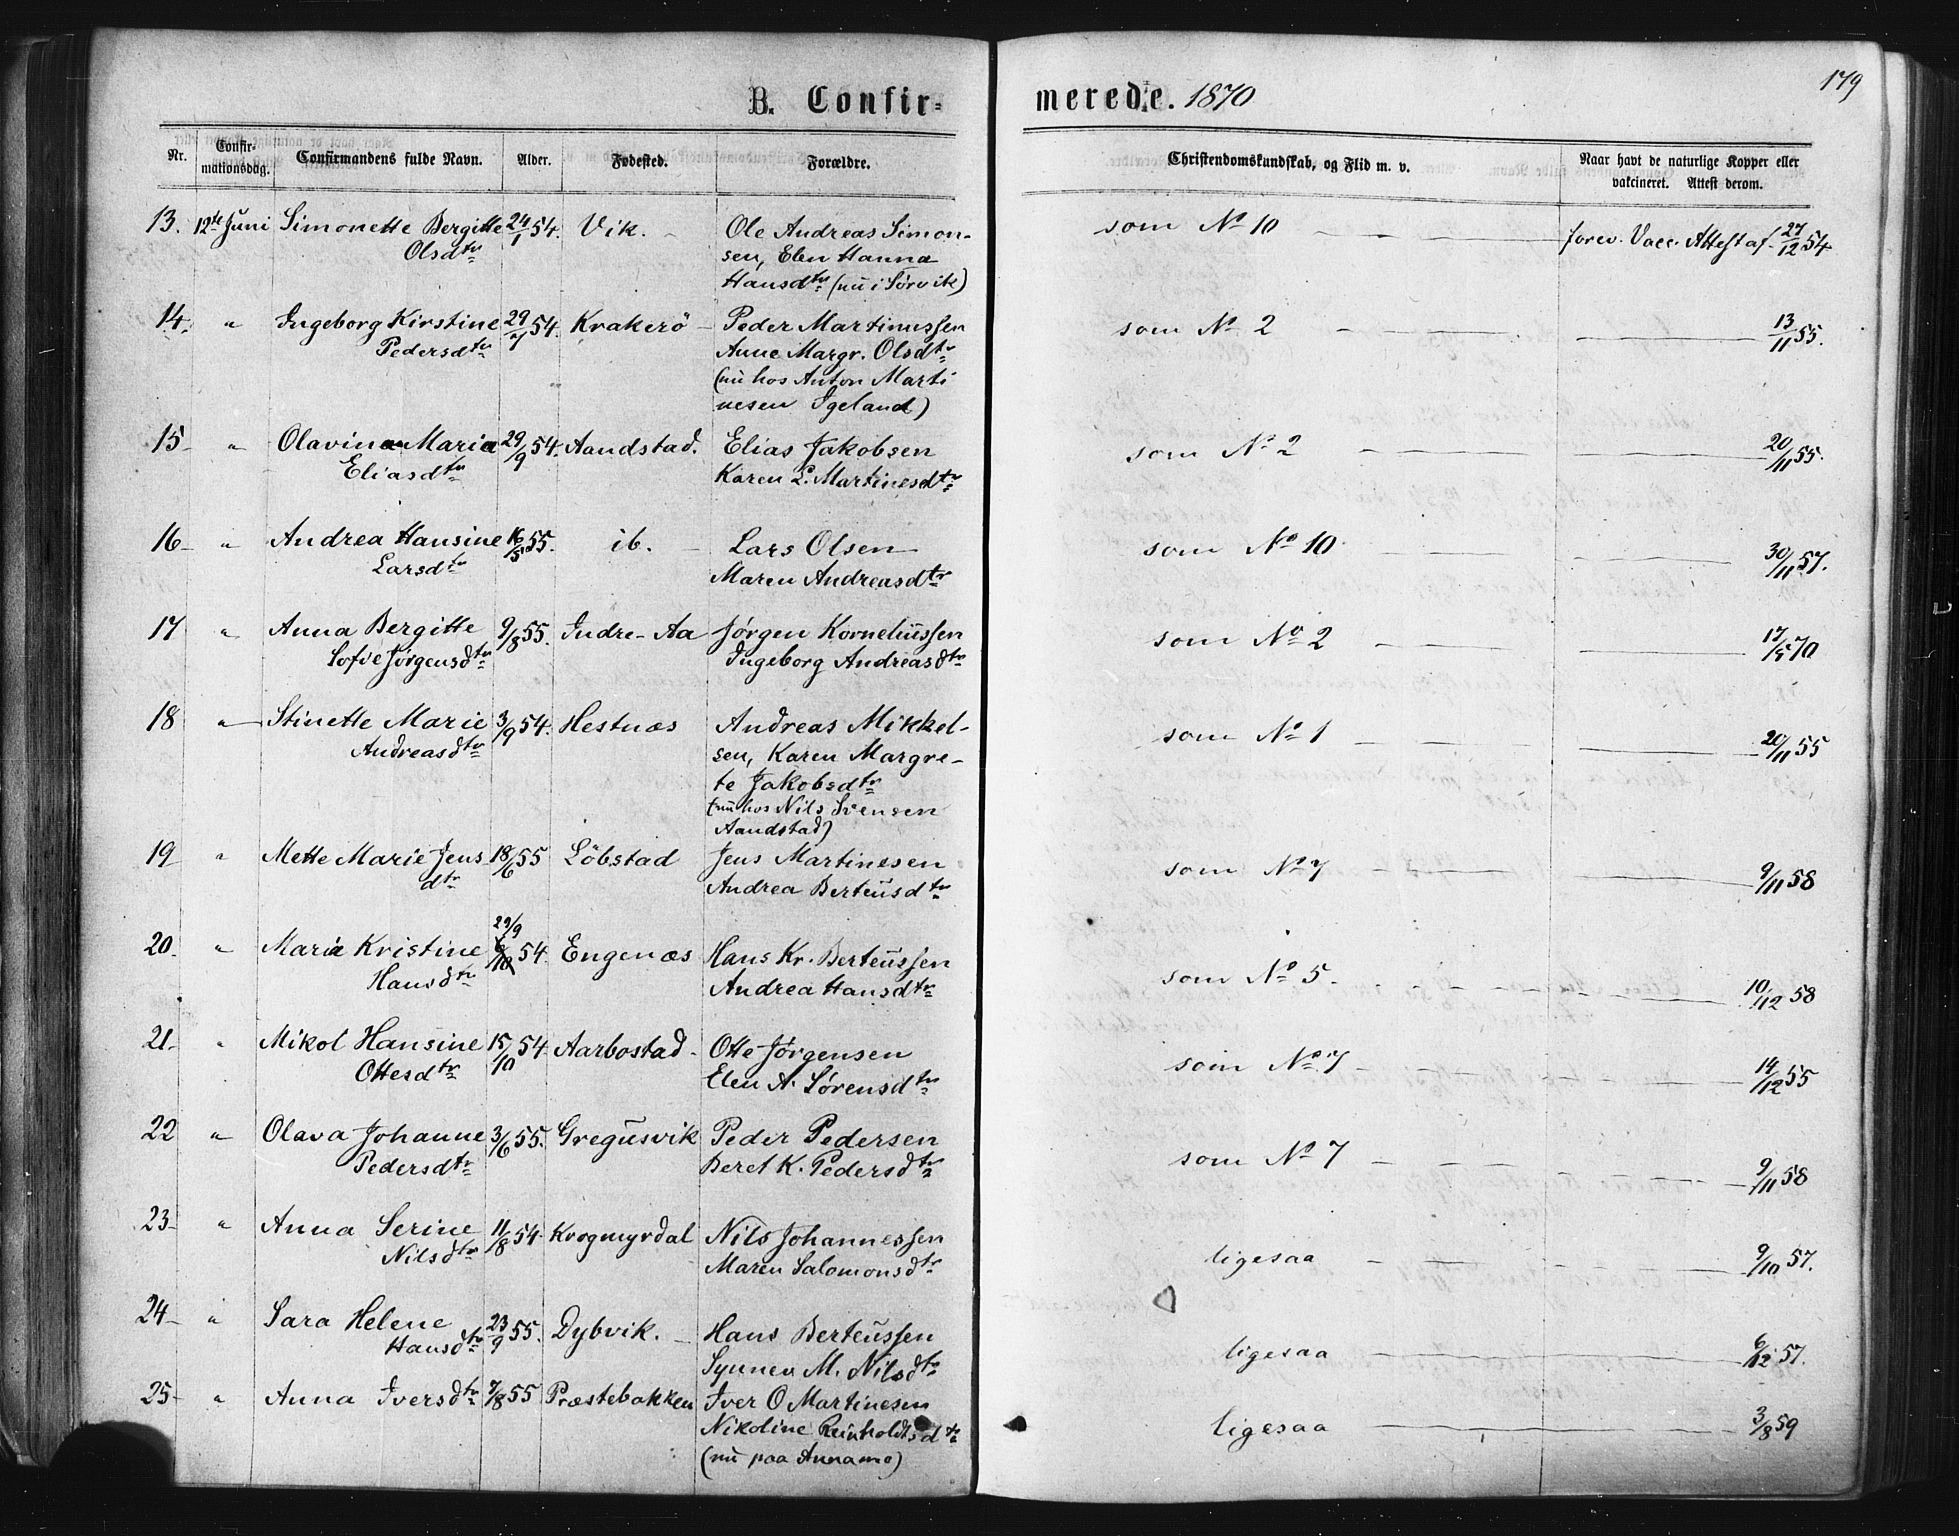 179
B. Confir- merede. 1870
Nr. Confir-mationsdag. Confirmandens fulde Navn. Alder. Fødested. Forældre. Christendomskundskab, og Flid m. v. Naar havt de naturlige Kopper eller vakcineret. Attest derom.
13. 12te Juni Simonette Bergitte 24/1 54. Vik. - Ole Andreas Simon- som No 10 forev. Vacc. Attest af 27/12 54
Olsdtr sen, Elen Hanna
Hansdtr (nu i Sørvik)
14. " Ingeborg Kirstine 29/7 54. Krakerö - Peder Martinussen som No 2 13/11 55.
Pedersdtr Anne Margr. Olsdtr
(nu hos Anton Marti
nesen Igeland)
15 " Olavina Maria 29/9 54. Aandstad. Elias Jakobsen som No 2 20/11 55.
Eliasdtr Karen L. Martinesdtr
16 " Andrea Hansine 16/5 55. ib. - Lars Olsen som No 10 30/11 57.
Larsdtr Maren Andreasdtr
17 " Anna Bergitte 9/8 55. Indre-Aa Jørgen Korneliussen som No 2 17/5 70
Sofie Jørgensdtr Ingeborg Andreasdtr
18 " Stinette Marie 3/9 54. Hestnæs Andreas Mikkel- som No 1 20/11 55
Andreasdtr sen, Karen Margre-
te Jakobsdtr
(nu hos Nils Svensen
Aandstad)
19 " Mette Marie Jens 18/6 55 Löbstad Jens Martinesen som No 7 9/11 58
dtr Andrea Berteusdtr
29/9
20. " Maria Kristine 6/10 54. Engenæs Hans Kr. Berteussen som No 5. 10/12 58
Hansdtr Andrea Hansdtr
21. " Mikol Hansine 15/10 54. Aarbostad - Otte Jørgensen som No 7 14/12 55
Ottesdtr Elen A. Sørensdtr
22 " Olava Johanne 3/6 55. Gregusvik Peder Pedersen som No 7 9/11 58
Pedersdtr Beret K. Pedersdtr
23 " Anna Serine 11/8 54. Krogmyrdal Nils Johannessen ligesaa 9/10 57.
Nilsdtr Maren Salomonsdtr
24 " Sara Helene 23/9 55. Dybvik. - Hans Berteussen ligesaa 6/12 57.
Hansdtr Synnev M. Nilsdtr
25 " Anna Iversdtr 7/8 55 Præstebakken Iver O Martinesen ligesaa 3/8 59
Nikoline Reinholdtsdtr
(nu paa Annamo)